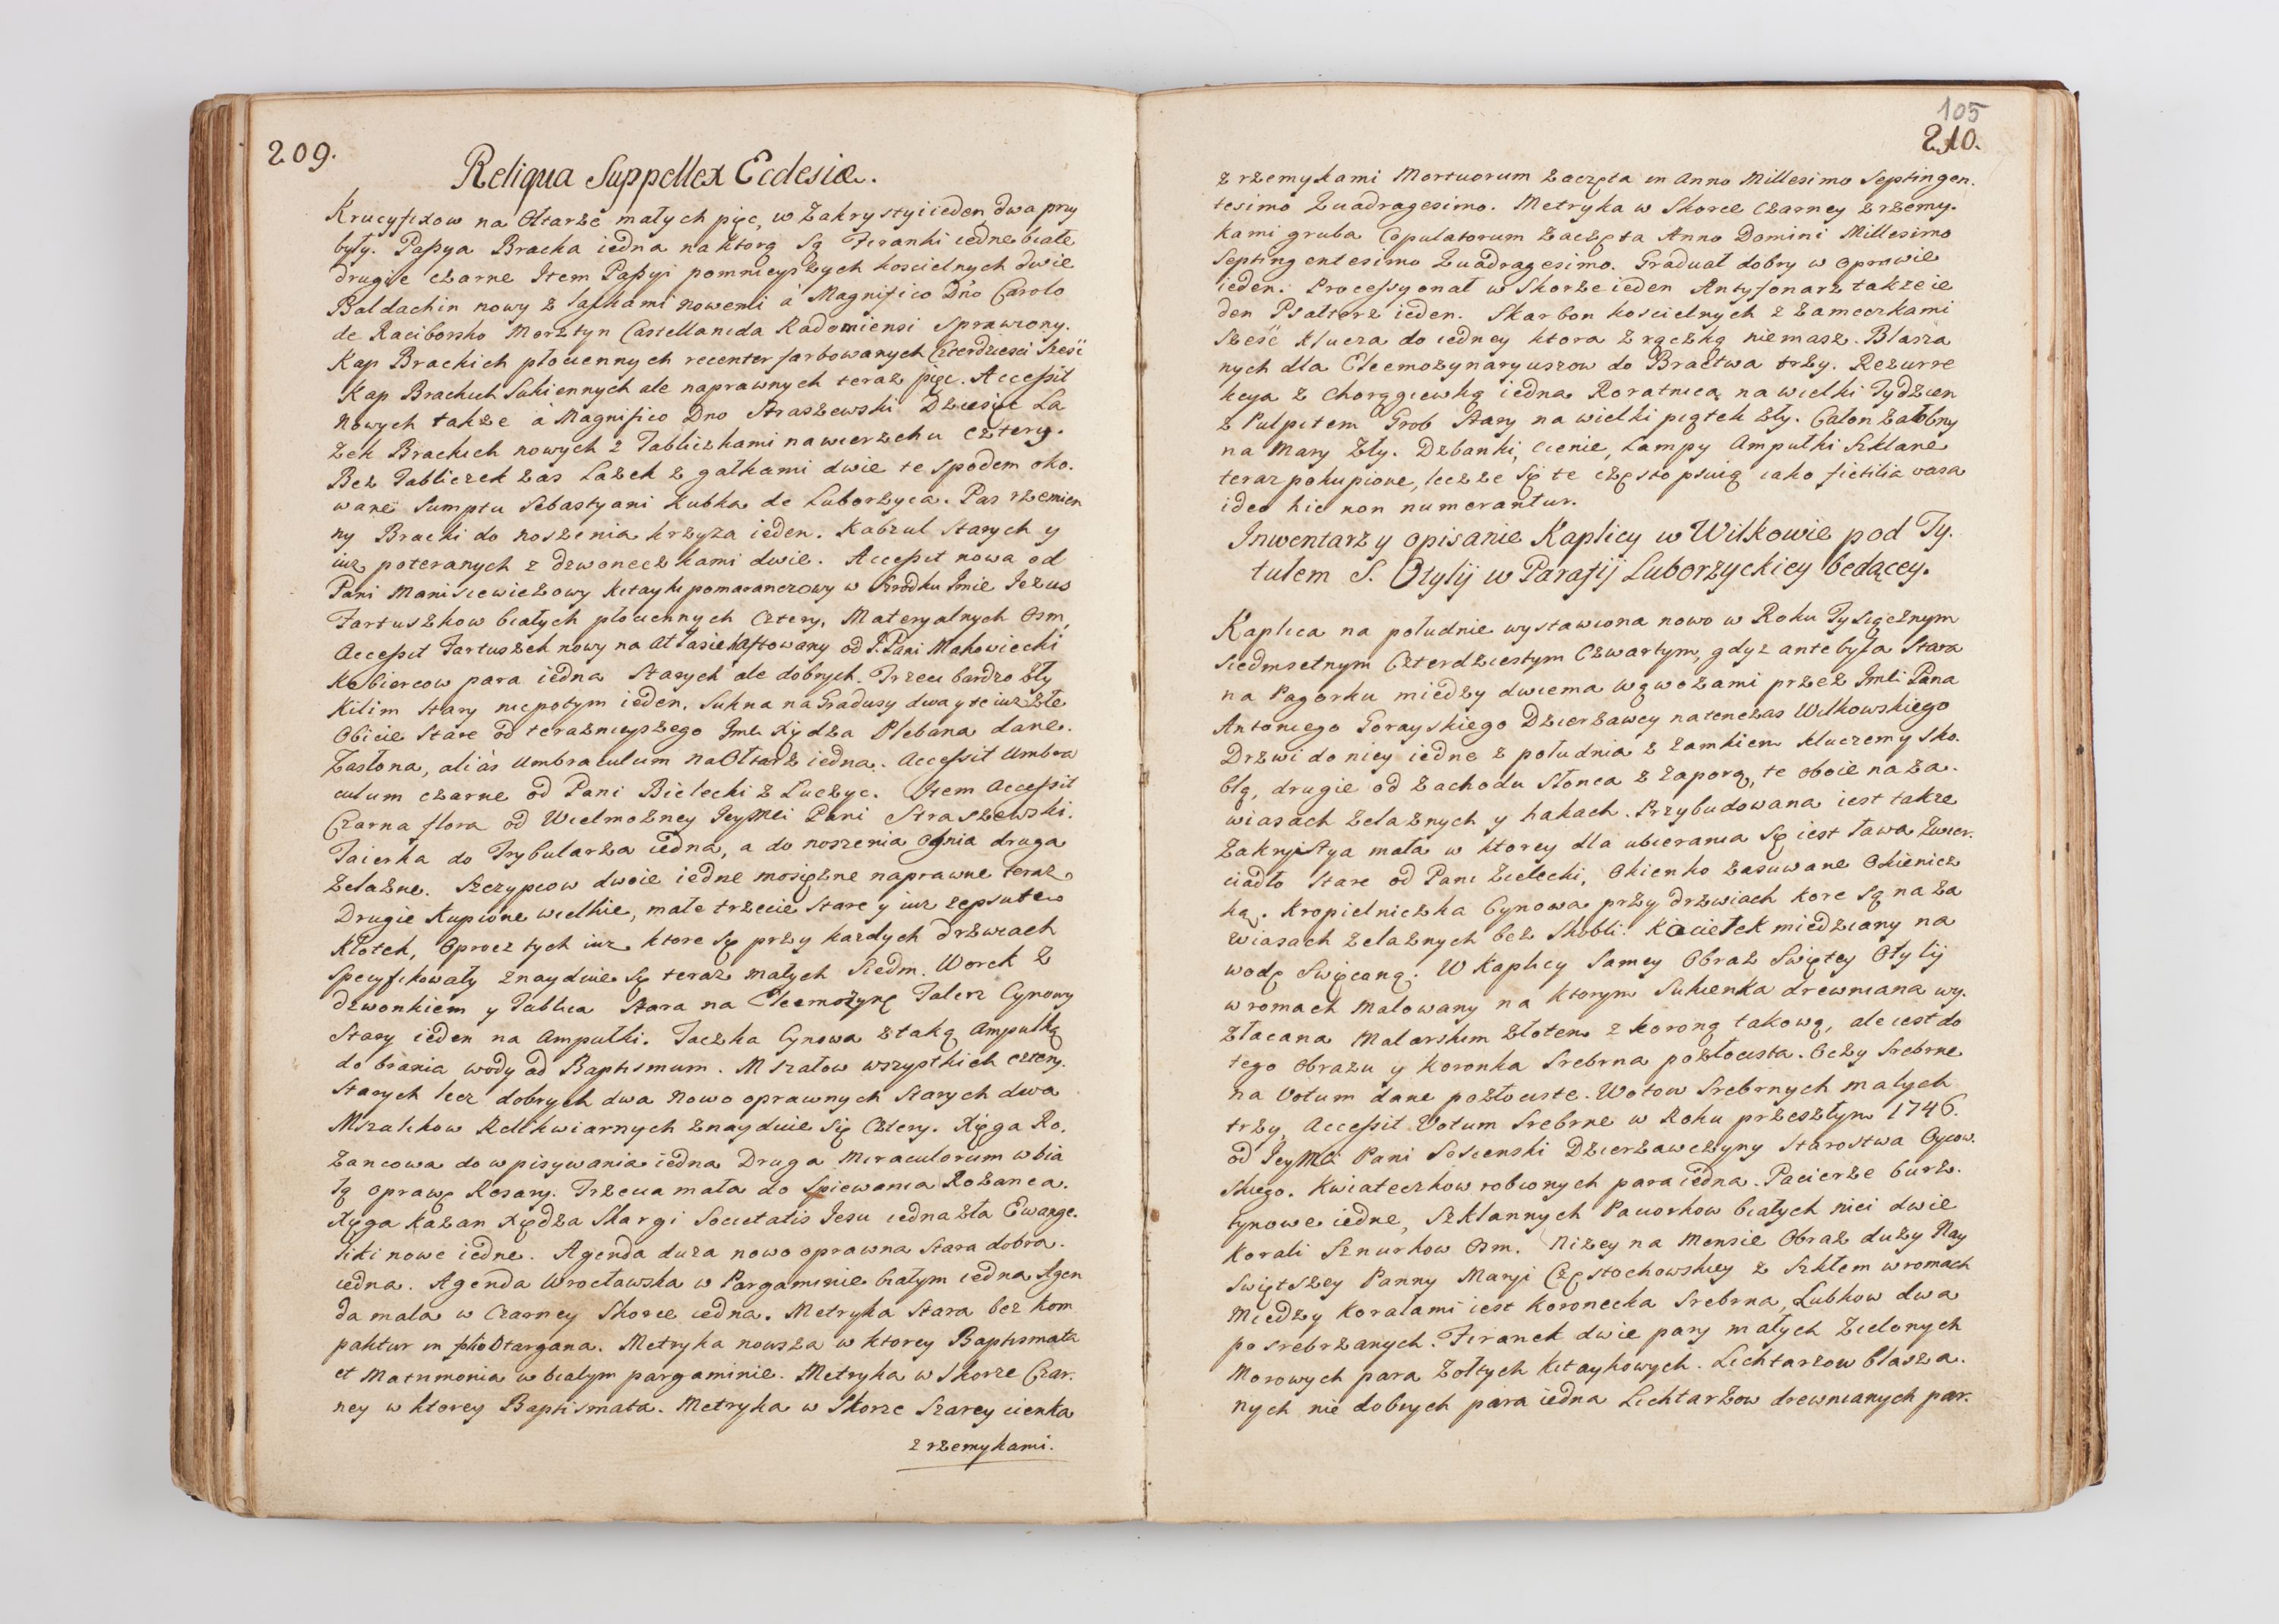 209.
Reliqua Suppellex Ecclesiæ.
Krucyfixow na Ołtarzé małych pięc, w Zakrystyi ieden, dwa przy
były. Paßya Bracka iedna na ktorą Są Firanki iedne białe
drugie czarne Item Paßyi pomnieyszych koscielnych dwie
Baldachin nowy z laskami nowemi à Magnifico Dno Carolo
de Raciborsko Morsztyn Castellanida Radomiensi Sprawiony.
Kap Brackich płociennych recenter farbowanych Czterdziesci Sześć
Kap Brackich Sukiennych ale naprawnych teraz pięc. Accessit
Nowych także à Magnifico Dno Straszewski Dziesięc La
Zek Brackich nowych z Tabliczkami na wierzchu cztery.
Bez Tabliczek zas Lazek z gałkami dwie te spodem oko.
wane Sumptu Sebastyani Kubka de Luborzyca. Pas rzemien
ny Bracki do noszenia krzyza ieden. Kabzul Starych y
iuz poteranych z dzwoneczkami dwie. Accessit nowa od
Pani Manisiewiczowy Kitayki pomaranczowy w Srodku Imie Iezus
Fartuszkow białych płociennych Cztery, Materyalnych Osm,
Accessit Fartuszek nowy na Atłasie Haftowany od J. Pani Makowiecki
Kobiercow para iedna Starych ale dobrych. Trzeci bardzo zły
Kilim Stary niepotym ieden. Sukna na Gradusy dwa y te iuz złe
Obicie Stare od teraznieyszego Jmci Xiędza Plebana dane.
Zasłona, aliàs Umbraculum na Ołtarz iedna. Accessit Umbra
culum czarne od Pani Bielecki z Luczyc. Item Accessit
Czarna flora od Wielmozney Jeymci Pani Straszewski.
Faierka do Trybularza iedna, a do noszenia Ognia druga
Zelazne. Szczypcow dwoie iedne mosięzne naprawne teraz
Drugie Kupione wielkie, małe trzecie Stare y iuz zepsute
Kłotek, Oprocz tych iuz ktore Są przy kazdych drzwiach
Specyfikowały znayduie Są teraz małych Siedm. Worek z
dzwonkiem y Tablica Stara na Eleemozynę Talerz Cynowy
Stary ieden na Ampułki. Taczka Cynowa z taką Ampułką
do brania wody ad Baptismum. Mszałow wszystkich cztery.
Starych lecz dobrych dwa Nowo oprawnych Starych dwa
Mszalikow Rekwiarnych znayduie Się Cztery. Xięga Ro.
zancowa do wpisywania iedna Druga Miraculorum w bia
łą oprawę Rosary. Trzecia mała do Spiewania Rozanca.
Xięga Kazan Xiędza Skargi Societatis Jesu iedna zła Ewange.
liki nowe iedne. Agenda duza nowo oprawna Stara dobra.
iedna. Agenda Wrocławska w Pargaminie białym iedna Agen
da mała w Czarney Skorce iedna. Metryka Stara bez kom
paktur in folio Otargana. Metryka nowsza w ktorey Baptismata
et Matrimonia w białym pargaminie. Metryka w Skorze Czar.
ney w ktorey Baptismata. Metryka w Skorze Szarey cienka
z rzemykami.
105
210.
z rzemykami Mortuorum zaczęta in Anno Millesimo Septingen.
tesimo Quadragesimo. Metryka w Skorce Czarney z rzemy.
kami gruba Copulatorum zaczęta Anno Domini Millesimo
Septingentesimo Quadragesimo. Graduał dobry w Oprawie
ieden. Processyonał w Skorze ieden Antyfonarz takze ie
den Psałterz ieden. Skarbon koscielnych z zameczkami
Sześć Klucza do iedney ktora z rączką niemasz. Blasza
nych dla Eleemozynaryuszow do Bractwa trzy. Rezurre
kcya z Chorągiewką iedna Roratnica na wielki Tydzien
z Pulpitem Grob Stary na wielki piątek zły. Całon załobny
na Mary zły. Dzbanki, cienie, Lampy Ampułki Szklane
teraz pokupione, lecz ze Są te często psuią iako fictilia vasa
ideo hic non numerantur.
Inwentarz y opisanie Kaplicy w Wilkowie pod Ty.
tułem S. Otylij w Parafij Luborzyckiey bedącey.
Kaplica na południe wystawiona nowo w Roku Tysiącznym
Siedmsetnym Czterdziestym Czwartym, gdyz ante była Stara
na Pagorku miedzy dwiema wąwozami przez Jmci Pana
Antoniego Gorayskiego Dzierzawcy natenczas Wilkowskiego
Drzwi do niey iedne z południa z zamkiem kluczem y sko.
blą, drugie od Zachodu Słonca z zaporą, te oboie na za.
wiasach zelaznych y hakach. Przybudowana iest takze
Zakrystya mała w ktorey dla ubierania Się iest Ława Zwier.
ciadło Stare od Pani Zielecki, Okienko zasuwane Okienicz
ką. Kropielniczka Cynowa przy drzwiach kore są na za
wiasach zelaznych bez Skobli. Kociełek miedziany na
wodę Swięconą. W Kaplicy Samey Obraz Swiętey Otylij
w romach Malowany na ktorym Sukienka drewniana wy.
złacana Malarskim złotem z koroną takową, ale iest do
tego Obrazu y Koronka Srebrna pozłocista. Oczy Srebrne
na Votum dane pozłociste. Wotow Srebrnych małych
trzy, Accessit Votum Srebrne w Roku przeszłym 1746.
od Jeymci Pani Sosienski Dzierzawczyny Starostwa Oycow.
skiego. Kwiateczkow robionych para iedna. Pacierze bursz.
tynowe iedne, Szklannych Paciorkow białych nici dwie
Korali Sznurkow Osm. Nizey na Mensie Obraz duzy Nay
Swiętszey Panny Maryi Częstochowskiey z Szkłem w romach
Miedzy Koralami iest Koronecka Srebrna, Lubkow dwa
posrebrzanych. Firanek dwie pary małych Zielonych
Morowych para Zołtych Kitaykowych. Lichtarzow blasza.
nych nie dobrych para iedna Lichtarzow drewnianych par.